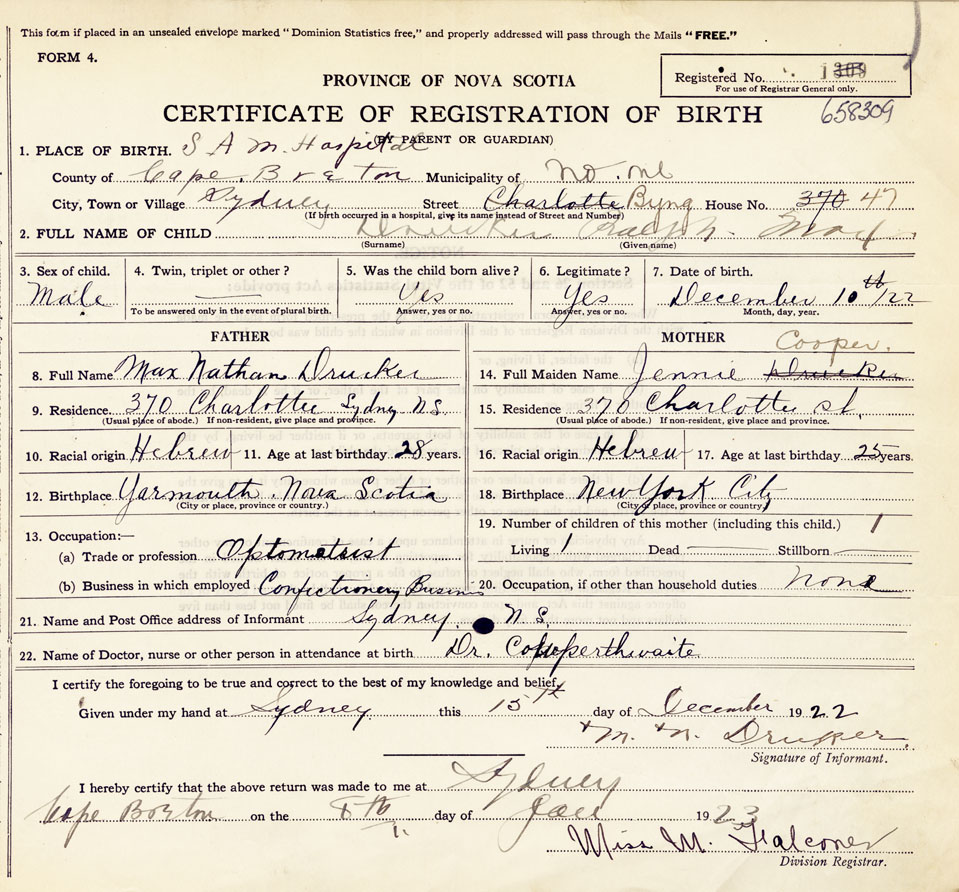 This form if placed in an unsealed envelope marked "Dominion Statistics free," and properly addressed will pass through the Mails "FREE."
FORM 4.
PROVINCE OF NOVA SCOTIA
Registered No. 1309
For use of Registrar General only.
CERTIFICATE OF REGISTRATION OF BIRTH
658309
(BY PARENT OR GUARDIAN)
1. PLACE OF BIRTH. S A M. Hospital
County of Cape Breton Municipality of
City, Town or Village Sydney Street Charlotte Byng House No. 370 47
(If birth occurred in a hospital, give its name instead of Street and Number)
2. FULL NAME OF CHILD Drucker Ralph Max
(Surname) (Given name)
3. Sex of child. 4. Twin, triplet or other? 5. Was the child born alive? 6. Legitimate? 7. Date of birth.
Male — Yes Yes December 10th/22
To be answered only in the event of plural birth. Answer, yes or no. Answer, yes or no. Month, day, year.
FATHER MOTHER
Cooper.
8. Full Name Max Nathan Drucker 14. Full Maiden Name Jennie Drucker
9. Residence. 370 Charlotte Sydney N.S. 15. Residence 370 Charlotte St.
(Usual place of abode.) If non-resident, give place and province. (Usual place of abode.) If non-resident, give place and province.
10. Racial origin Hebrew 11. Age at last birthday 28 years. 16. Racial origin Hebrew 17. Age at last birthday 25 years.
12. Birthplace Yarmouth. Nova Scotia 18. Birthplace New York City
(City or place, province or country.) (City or place, province or country)
13. Occupation:— 19. Number of children of this mother (including this child.) 1
(a) Trade or profession Optometrist Living 1 Dead — Stillborn —
(b) Business in which employed Confectionery Business 20. Occupation, if other than household duties None
21. Name and Post Office address of Informant Sydney. N.S.
22. Name of Doctor, nurse or other person in attendance at birth Dr.
I certify the foregoing to be true and correct to the best of my knowledge and belief.
Given under my hand at Sydney this 15th day of December 1922
M. N. Druker.
Signature of Informant.
I hereby certify that the above return was made to me at Sydney
Cape Breton on the 8th day of Jan 1923
Miss M. Falconer
Division Registrar.